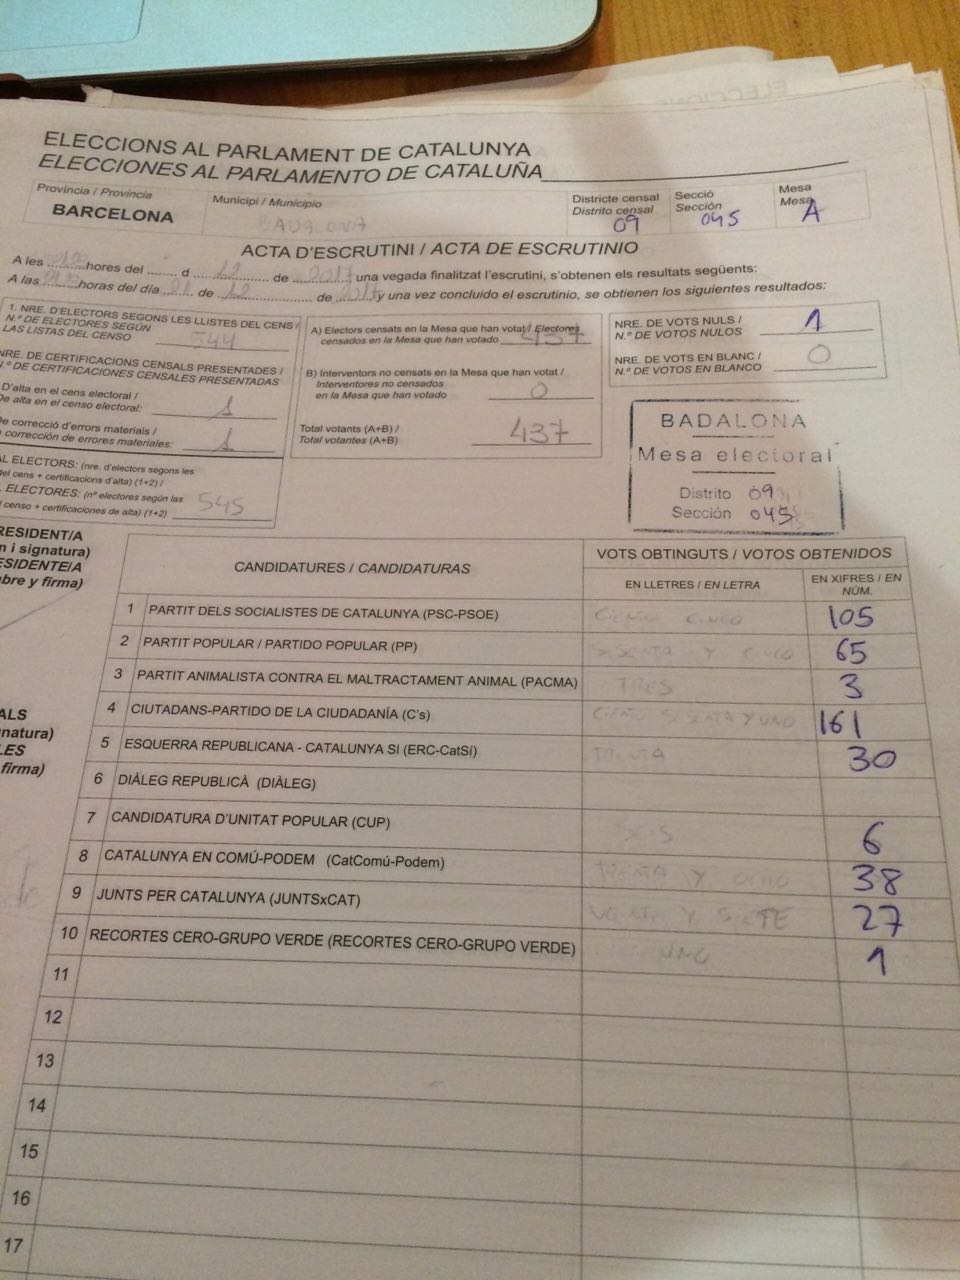 ELECCIONS AL PARLAMENT DE CATALUNYA
ELECCIONES AL PARLAMENTO DE CATALUÑA
Província / Provincia
BARCELONA
Municipi / Municipio
BADALONA
Districte censal
Distrito censal
09
Secció
Sección
045
Mesa
Mesa
A
ACTA D'ESCRUTINI / ACTA DE ESCRUTINIO
A les hores del d 12 de 2017 una vegada finalitzat l'escrutini, s'obtenen els resultats següents:
A las horas del día 21 de 12 de 2017 y una vez concluido el escrutinio, se obtienen los siguientes resultados:
1. NRE. D'ELECTORS SEGONS LES LLISTES DEL CENS /
N.º DE ELECTORES SEGÚN
LAS LISTAS DEL CENSO 544
NRE. DE CERTIFICACIONS CENSALS PRESENTADES /
N.º DE CERTIFICACIONES CENSALES PRESENTADAS
D'alta en el cens electoral /
De alta en el censo electoral: 1
De correcció d'errors materials /
corrección de errores materiales: 1
AL ELECTORS: (nre. d'electors segons les
del cens + certificacions d'alta) (1+2) /
ELECTORES: (nº electores según las
censo + certificaciones de alta) (1+2) 545
A) Electors censats en la Mesa que han votat / Electores
censados en la Mesa que han votado 437
B) Interventors no censats en la Mesa que han votat /
Interventores no censados
en la Mesa que han votado 0
Total votants (A+B) /
Total votantes (A+B) 437
NRE. DE VOTS NULS /
N.º DE VOTOS NULOS 1
NRE. DE VOTS EN BLANC /
N.º DE VOTOS EN BLANCO 0
BADALONA
Mesa electoral
Distrito 09
Sección 045
RESIDENT/A
n i signatura)
ESIDENTE/A
bre y firma)
ALS
natura)
LES
firma)
CANDIDATURES / CANDIDATURAS
VOTS OBTINGUTS / VOTOS OBTENIDOS
EN LLETRES / EN LETRA
EN XIFRES / EN
NÚM.
1 PARTIT DELS SOCIALISTES DE CATALUNYA (PSC-PSOE) CIENTO CINCO 105
2 PARTIT POPULAR / PARTIDO POPULAR (PP) SESENTA Y CINCO 65
3 PARTIT ANIMALISTA CONTRA EL MALTRACTAMENT ANIMAL (PACMA) TRES 3
4 CIUTADANS-PARTIDO DE LA CIUDADANÍA (C's) CIENTO SESENTA Y UNO 161
5 ESQUERRA REPUBLICANA - CATALUNYA SI (ERC-CatSí) TREINTA 30
6 DIÀLEG REPUBLICÀ (DIÀLEG)
7 CANDIDATURA D'UNITAT POPULAR (CUP) SEIS 6
8 CATALUNYA EN COMÚ-PODEM (CatComú-Podem) TREINTA Y OCHO 38
9 JUNTS PER CATALUNYA (JUNTSxCAT) VEINTE Y SIETE 27
10 RECORTES CERO-GRUPO VERDE (RECORTES CERO-GRUPO VERDE) UNO 1
11
12
13
14
15
16
17